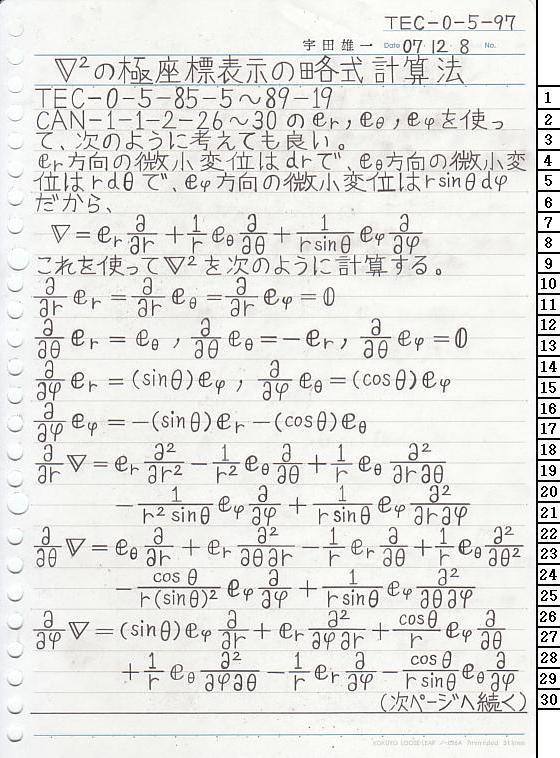 TEC-0-5-97
宇田雄一 Date 07.12.8 No.
∇²の極座標表示の略式計算法
TEC-0-5-85-5～89-19
CAN-1-1-2-26～30の e_r, e_θ, e_φを使っ
て、次のように考えても良い。
e_r方向の微小変位はdrで、e_θ方向の微小変
位はrdθで、e_φ方向の微小変位はr sinθdφ
だから、
∇ = e_r ∂/∂r + 1/r e_θ ∂/∂θ + 1/(r sinθ) e_φ ∂/∂φ
これを使って∇²を次のように計算する。
∂/∂r e_r = ∂/∂r e_θ = ∂/∂r e_φ = 0
∂/∂θ e_r = e_θ , ∂/∂θ e_θ = -e_r , ∂/∂θ e_φ = 0
∂/∂φ e_r = (sinθ)e_φ , ∂/∂φ e_θ = (cosθ)e_φ
∂/∂φ e_φ = -(sinθ)e_r -(cosθ)e_θ
∂/∂r ∇ = e_r ∂²/∂r² - 1/r² e_θ ∂/∂θ + 1/r e_θ ∂²/∂r∂θ
- 1/(r² sinθ) e_φ ∂/∂φ + 1/(r sinθ) e_φ ∂²/∂r∂φ
∂/∂θ ∇ = e_θ ∂/∂r + e_r ∂²/∂θ∂r - 1/r e_r ∂/∂θ + 1/r e_θ ∂²/∂θ²
- cosθ/(r(sinθ)²) e_φ ∂/∂φ + 1/(r sinθ) e_φ ∂²/∂θ∂φ
∂/∂φ ∇ = (sinθ)e_φ ∂/∂r + e_r ∂²/∂φ∂r + cosθ/r e_φ ∂/∂θ
+ 1/r e_θ ∂²/∂φ∂θ - 1/r e_r ∂/∂φ - cosθ/(r sinθ) e_θ ∂/∂φ
(次ページへ続く)
KOKUYO LOOSE-LEAF ノ-836A 7mm ruled 31 lines
1
2
3
4
5
6
7
8
9
10
11
12
13
14
15
16
17
18
19
20
21
22
23
24
25
26
27
28
29
30